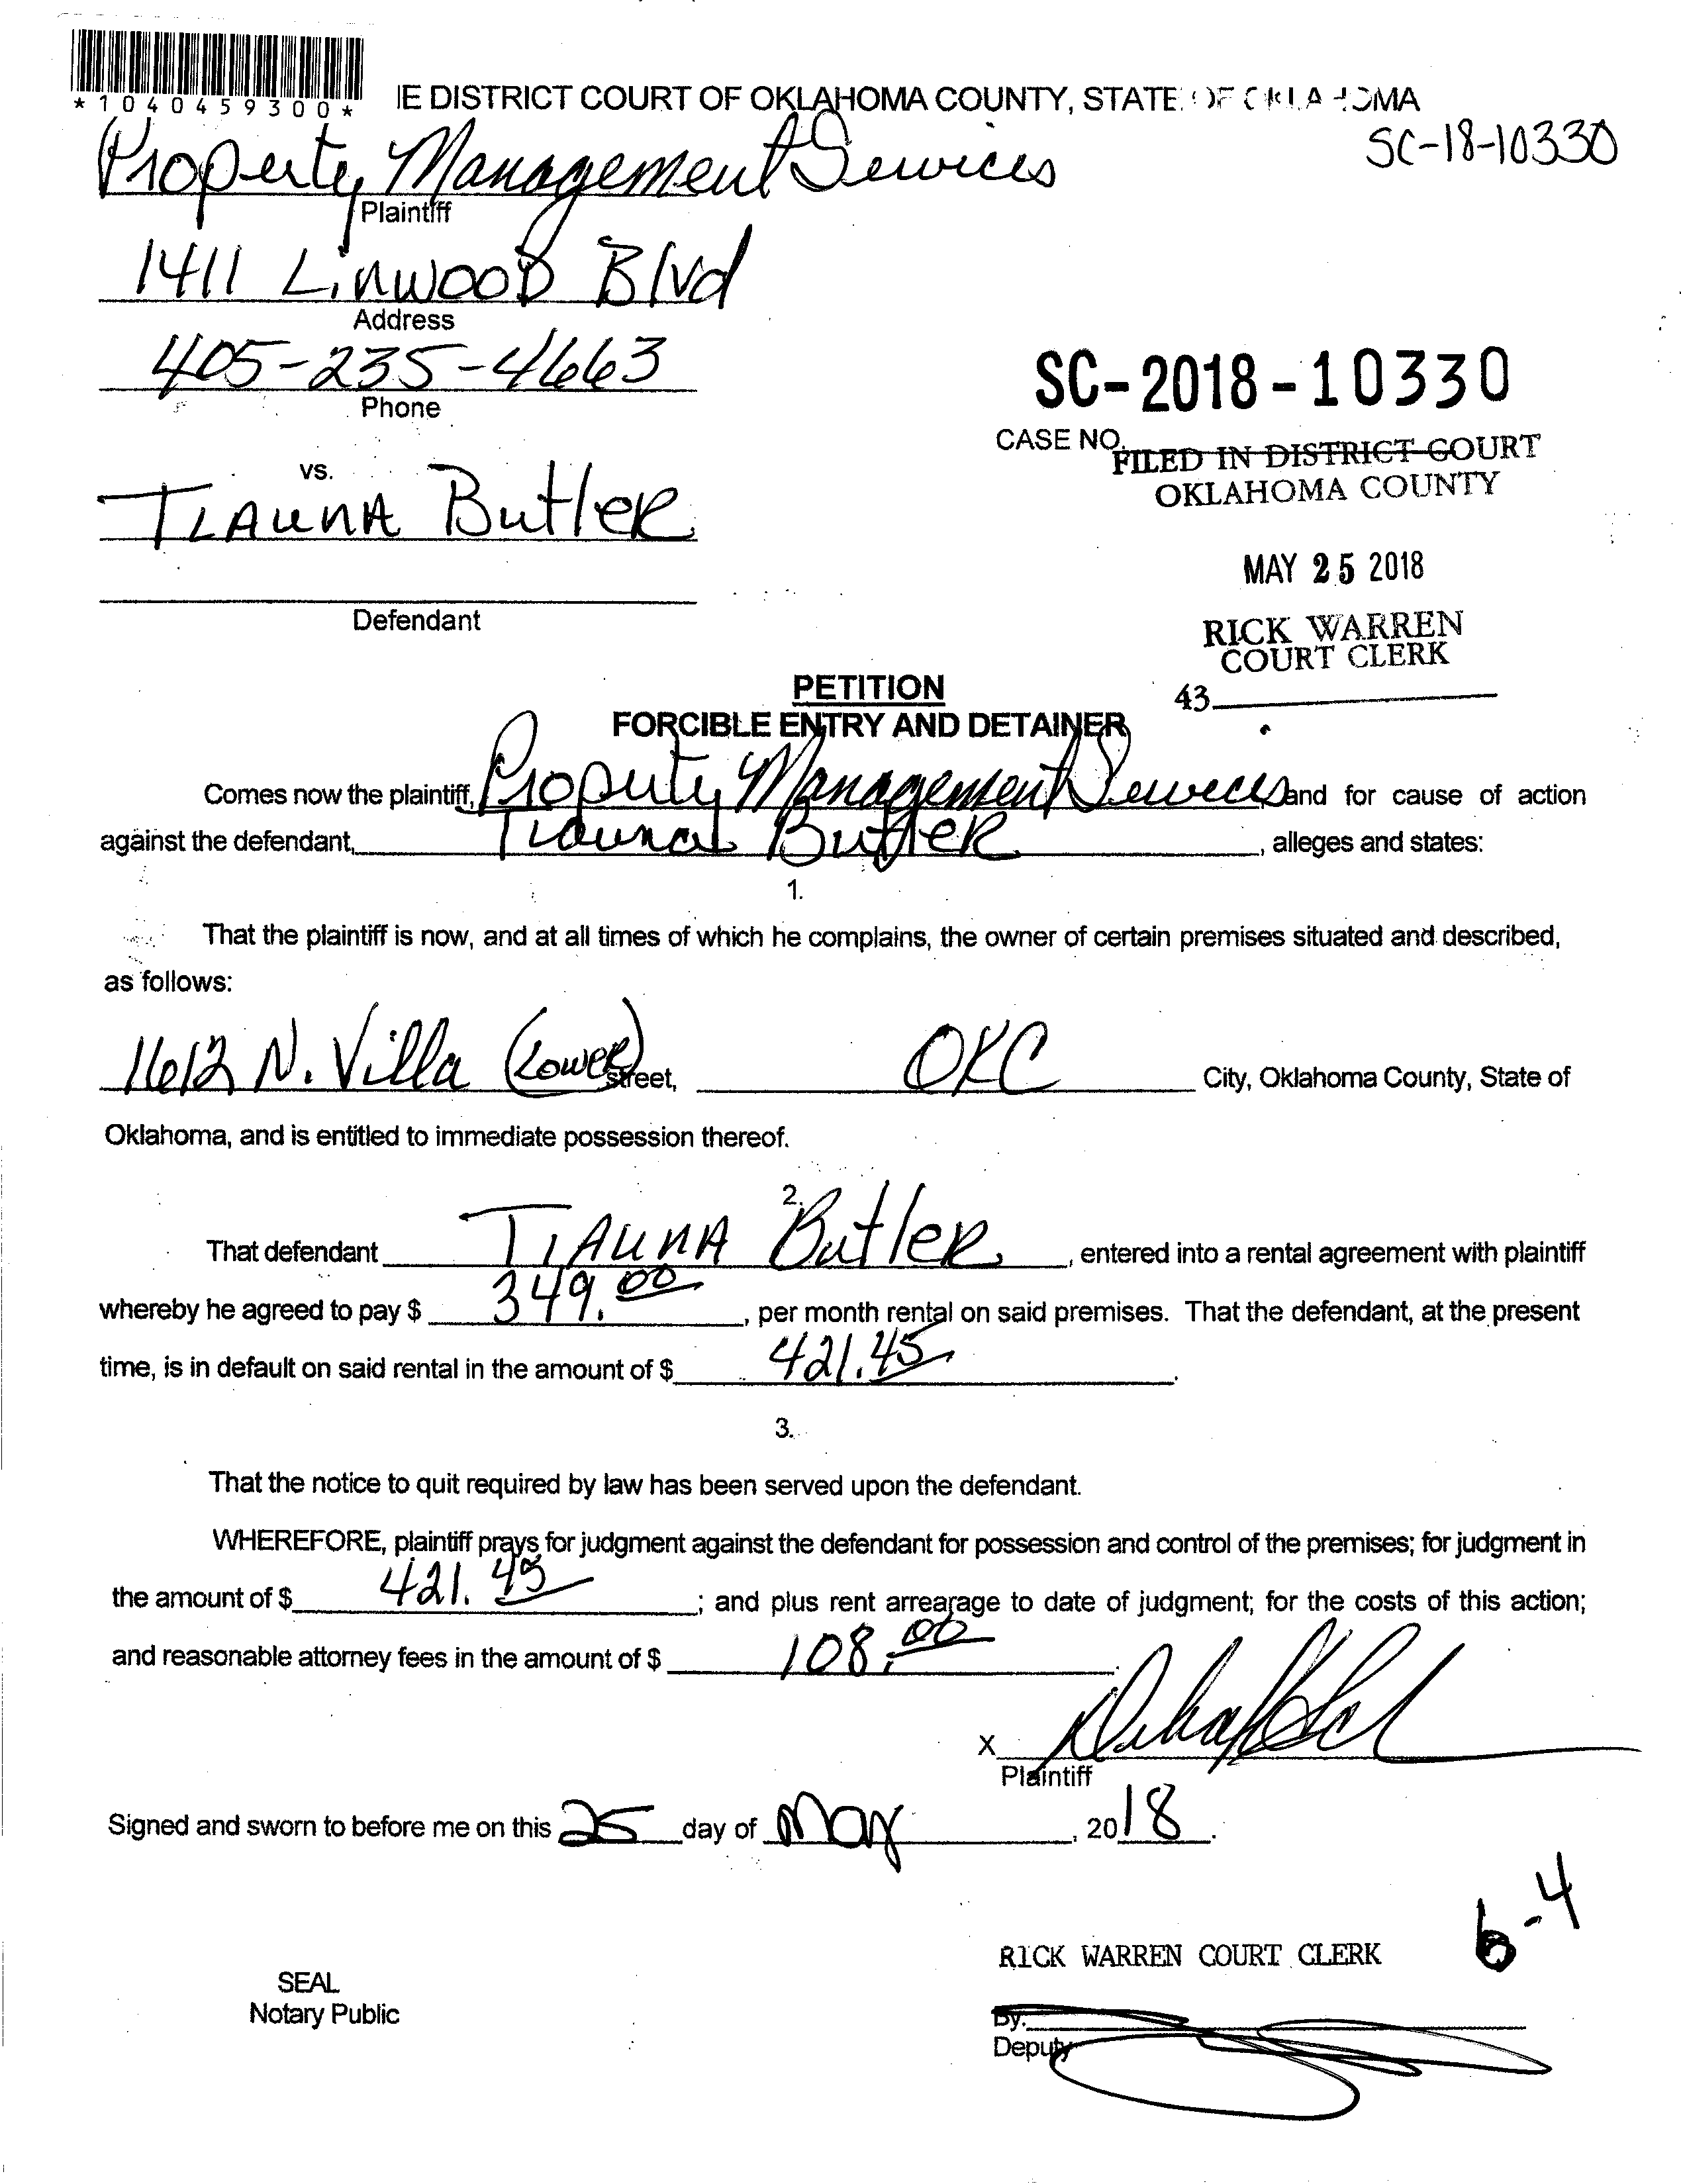 *1040459300*
IE DISTRICT COURT OF OKLAHOMA COUNTY, STATE OF OKLAHOMA
SC-18-10330
Property Management Services
Plaintiff
1411 Linwood Blvd
Address
405-235-4663
Phone
SC-2018-10330
CASE NO.
FILED IN DISTRICT COURT
OKLAHOMA COUNTY
vs.
Tiauna Butler
MAY 25 2018
Defendant
RICK WARREN
COURT CLERK
43
PETITION
FORCIBLE ENTRY AND DETAINER
Comes now the plaintiff, Property Management Services and for cause of action
against the defendant, Tiauna Butler, alleges and states:
1.
That the plaintiff is now, and at all times of which he complains, the owner of certain premises situated and described,
as follows:
1612 N. Villa (Lower) Street, OKC City, Oklahoma County, State of
Oklahoma, and is entitled to immediate possession thereof.
2.
That defendant Tiauna Butler, entered into a rental agreement with plaintiff
whereby he agreed to pay $ 349.00, per month rental on said premises. That the defendant, at the present
time, is in default on said rental in the amount of $ 421.45.
3.
That the notice to quit required by law has been served upon the defendant.
WHEREFORE, plaintiff prays for judgment against the defendant for possession and control of the premises; for judgment in
the amount of $ 421.45; and plus rent arrearage to date of judgment; for the costs of this action;
and reasonable attorney fees in the amount of $ 108.00.
X
Plaintiff
Signed and sworn to before me on this 25 day of May, 2018.
6-4
RICK WARREN COURT CLERK
SEAL
Notary Public
By:
Deputy